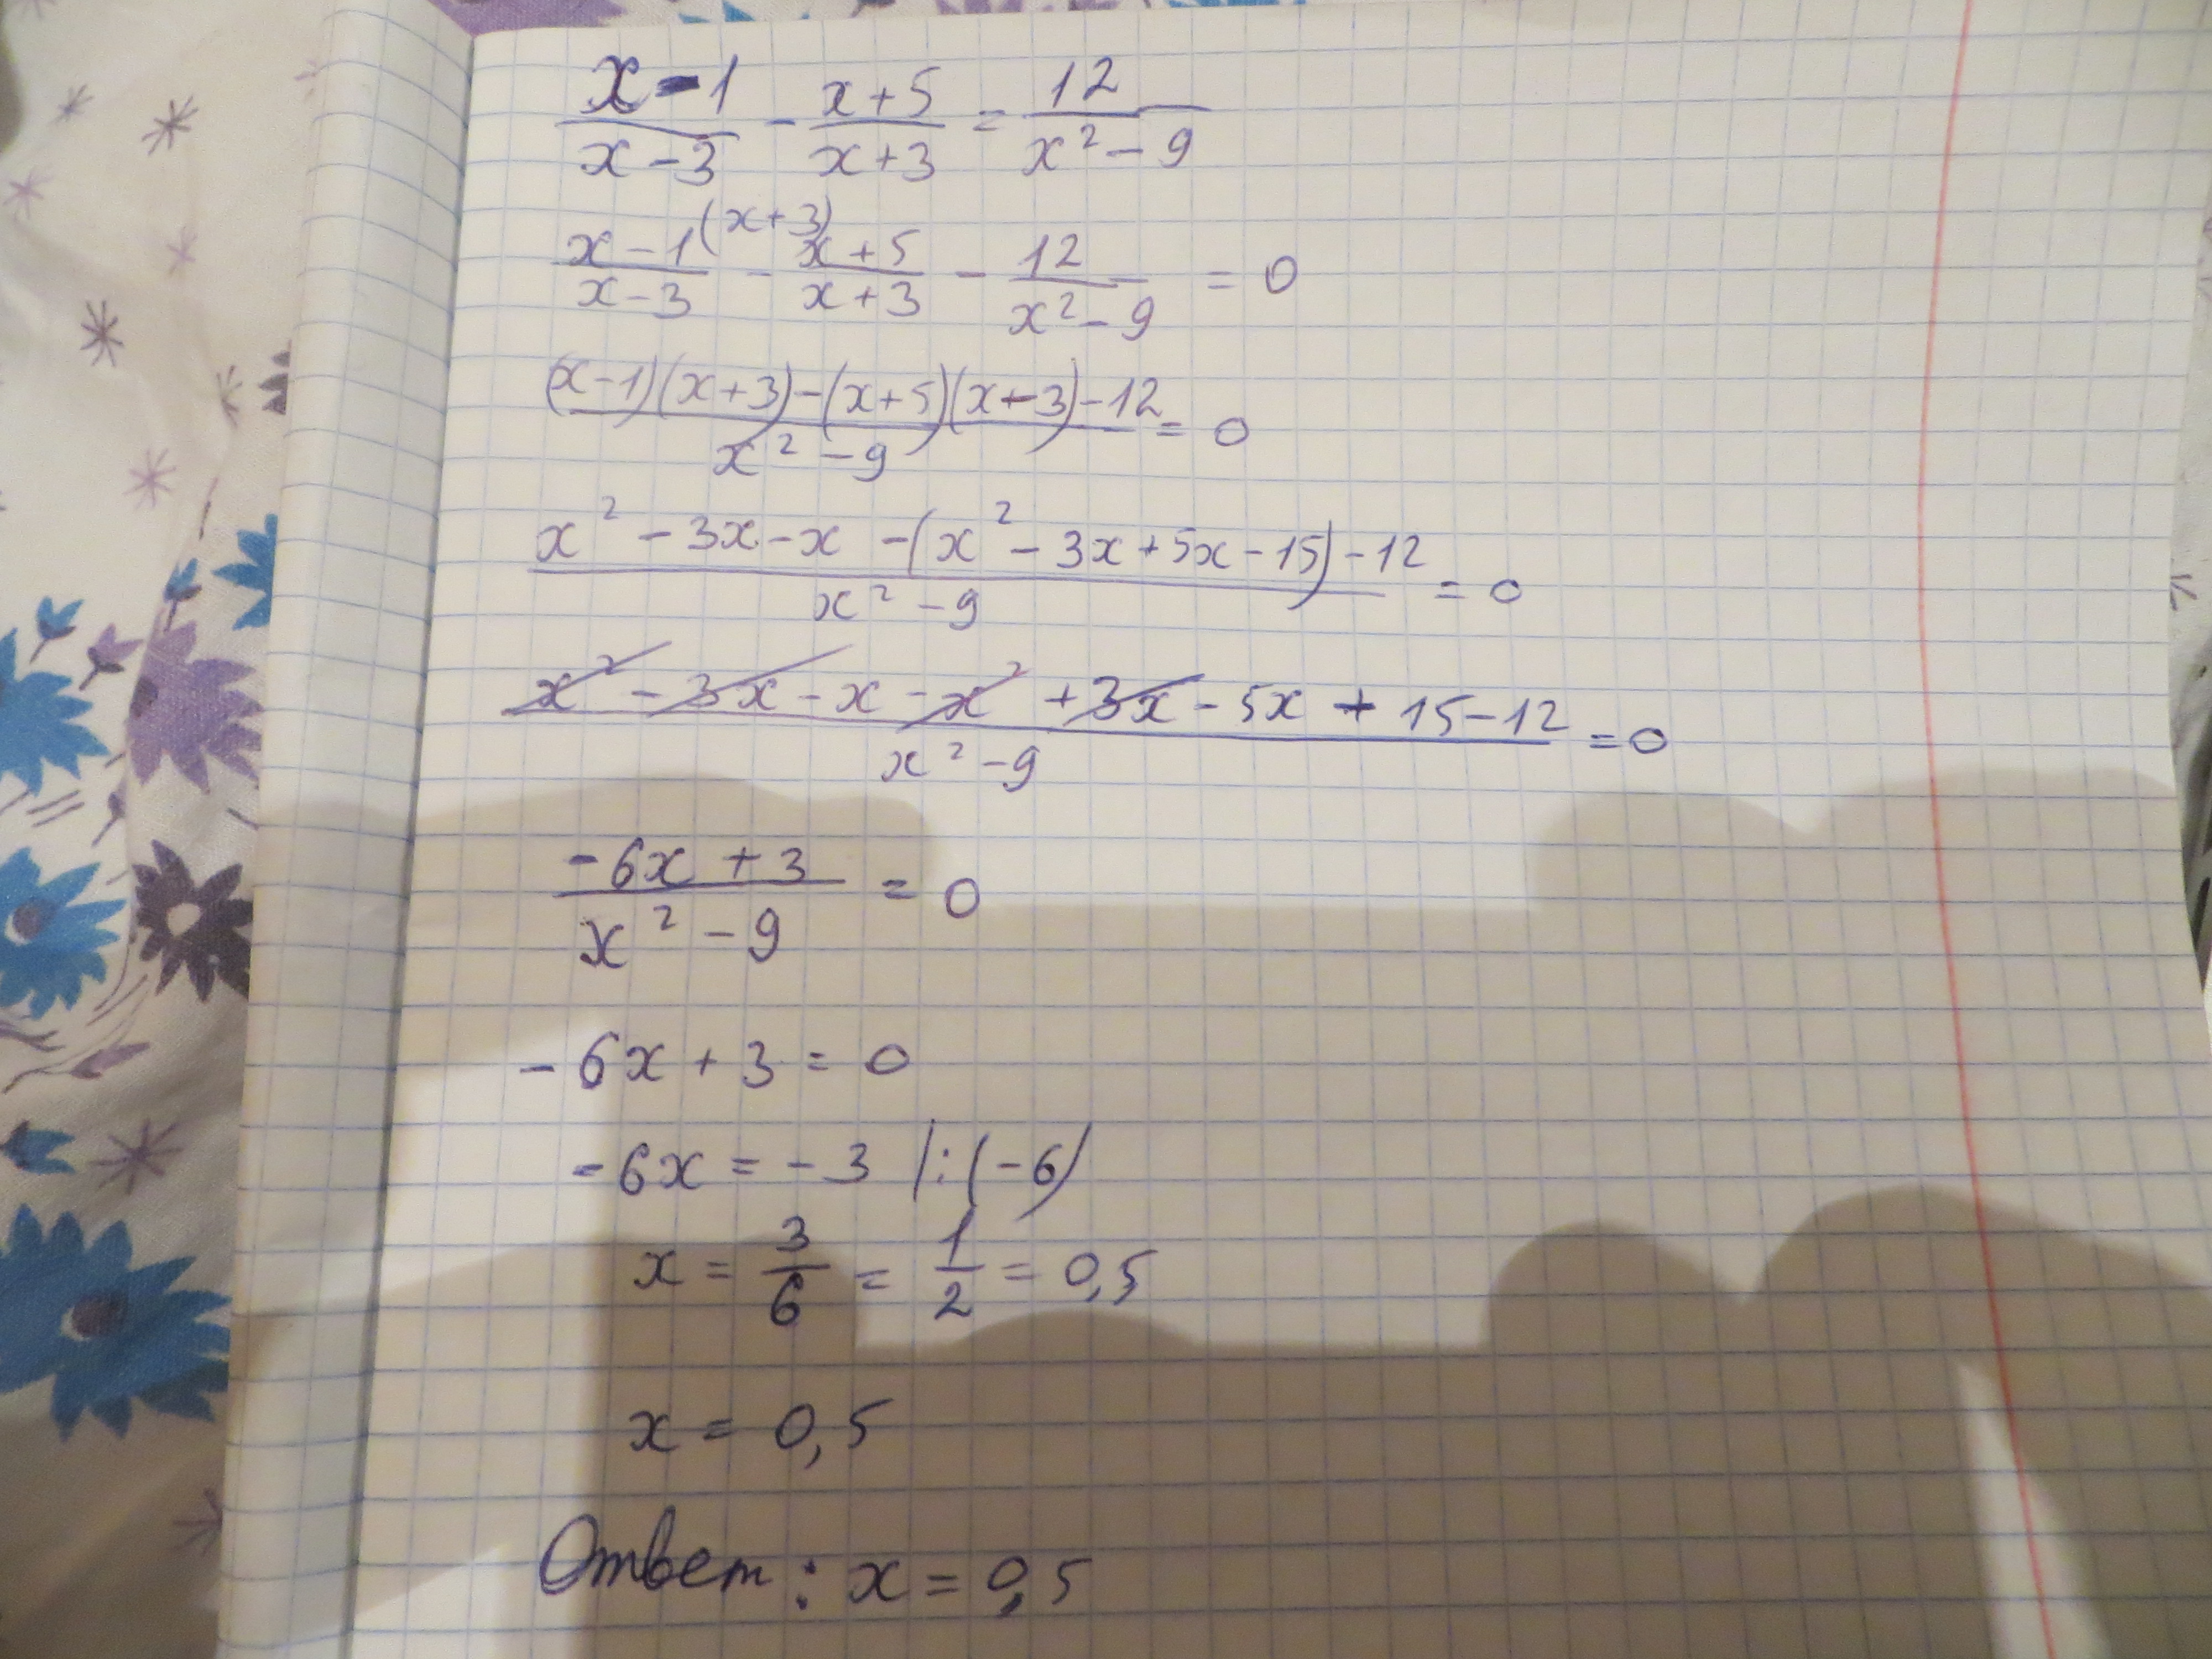 (x-1)/(x-3) - (x+5)/(x+3) = 12/(x²-9)
(x-1)/(x-3) (x+3) - (x+5)/(x+3) - 12/(x²-9) = 0
((x-1)(x+3)-(x+5)(x-3)-12)/(x²-9) = 0
(x²-3x-x-(x²-3x+5x-15)-12)/(x²-9) = 0
(x²-3x-x-x²+3x-5x+15-12)/(x²-9) = 0
(-6x+3)/(x²-9) = 0
-6x+3=0
-6x=-3 |:(-6)
x = 3/6 = 1/2 = 0,5
x = 0,5
Ответ: x = 0,5